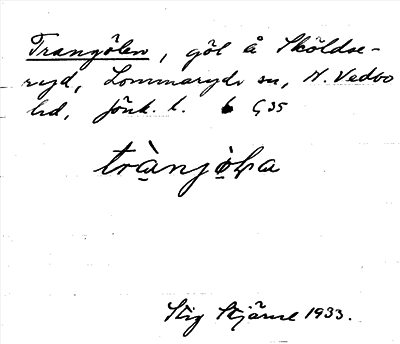 Trangölen, göl å Skölds-
ryd, Lommaryds sn, N. Vedbo
hd, Jönk. l. G 35
trànjò̱ḷa
Stig Stjärne 1933.